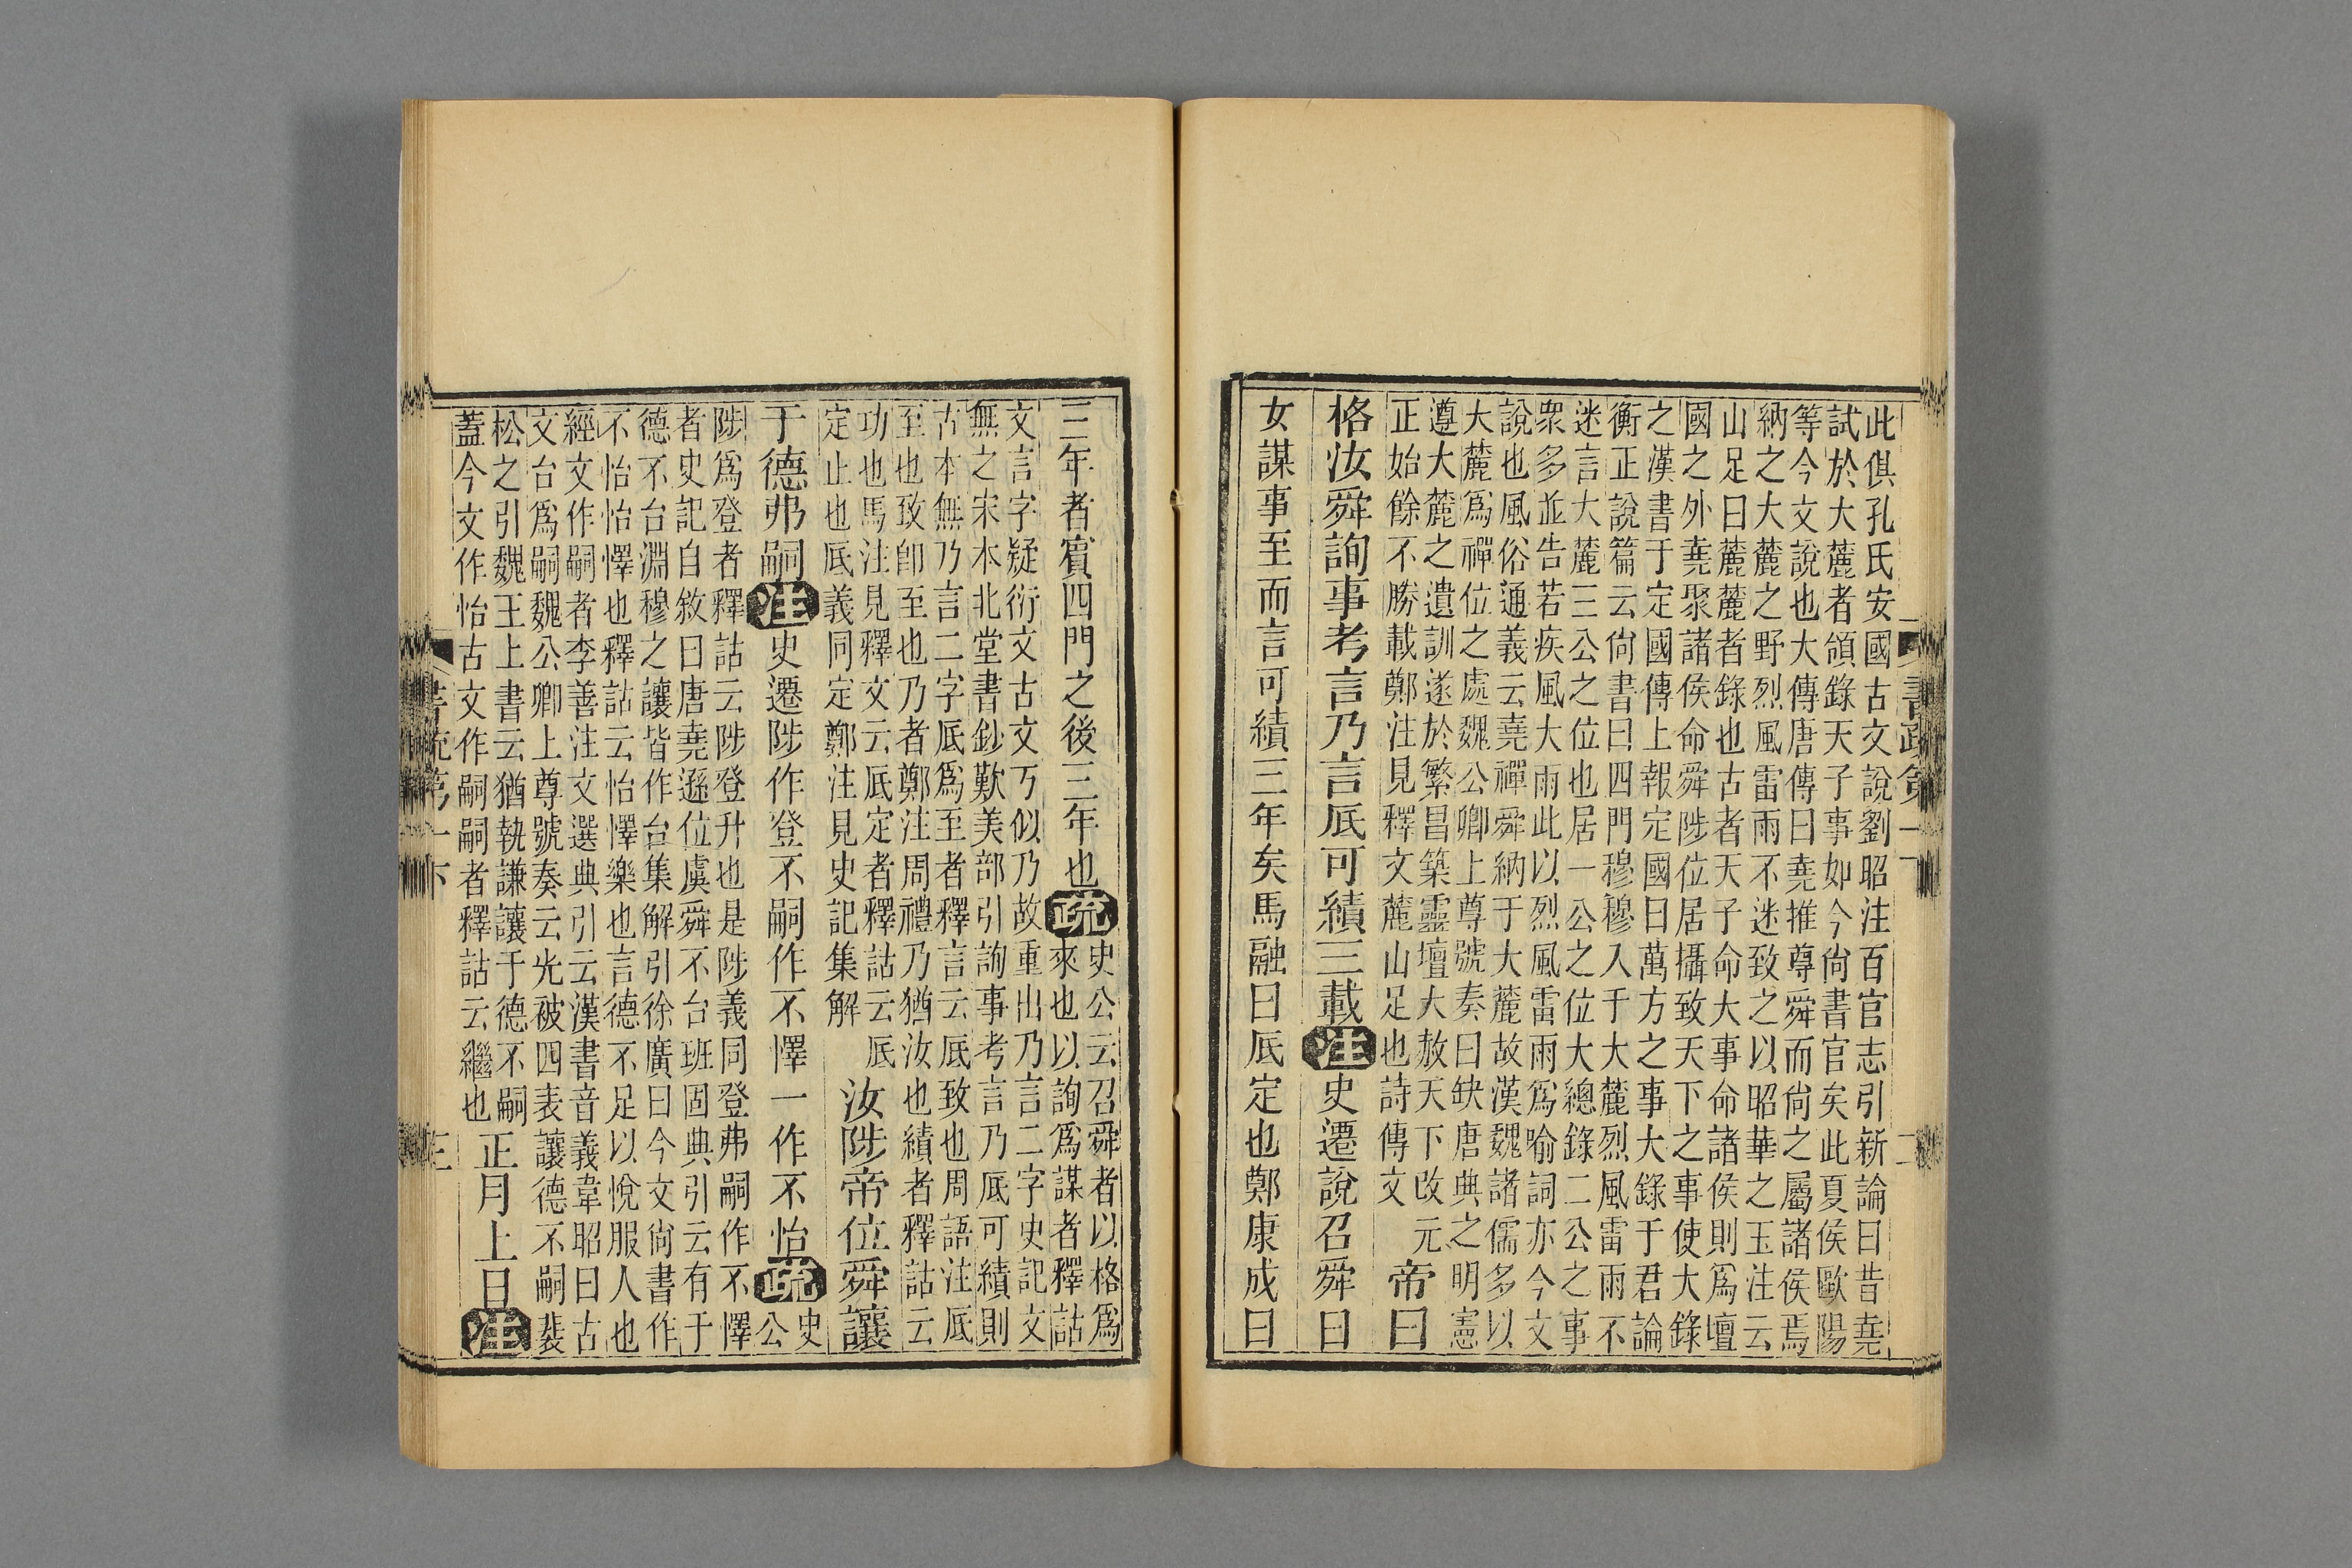 此俱孔氏安國古文說劉昭注百官志引新論曰昔堯
試於大麓者領錄天子事如今尙書官矣此夏侯歐陽
等今文說也大傳唐傳曰堯推尊舜而尙之屬諸侯焉
納之大麓之野烈風雷雨不迷致之以昭華之玉注云
山足曰麓麓者錄也古者天子命大事命諸侯則爲壇
國之外堯聚諸侯命舜陟位居攝致天下之事使大錄
之漢書于定國傳上報定國曰萬方之事大錄于君論
衡正說篇云尙書曰四門穆穆入于大麓烈風雷雨不
迷言大麓三公之位也居一公之位大總錄二公之事
衆多並告若疾風大雨此以烈風雷雨爲喻詞亦今文
說也風俗通義云堯禪舜納于大麓故漢魏諸儒多以
大麓爲禪位之處魏公卿上尊號奏曰缺唐典之明憲
遵大麓之遺訓遂於繁昌築靈壇大赦天下改元
正始餘不勝載鄭注見釋文麓山足也詩傳文
帝曰
格汝舜詢事考言乃言厎可績三載注史遷說召舜曰
女謀事至而言可績三年矣馬融曰厎定也鄭康成曰
三年者賓四門之後三年也疏
史公云召舜者以格爲
來也以詢爲謀者釋詁
文言字疑衍文古文丂似乃故重出乃言二字史記文
無之宋本北堂書鈔歎美部引詢事考言乃厎可績則
古本無乃言二字厎爲至者釋言云厎致也周語注厎
至也致卽至也乃者鄭注周禮乃猶汝也績者釋詁云
功也馬注見釋文云厎定者釋詁云厎
定止也厎義同定鄭注見史記集解
汝陟帝位舜讓
于德弗嗣注史遷陟作登不嗣作不懌一作不怡疏
史
公
陟爲登者釋詁云陟登升也是陟義同登弗嗣作不懌
者史記自敘曰唐堯遜位虞舜不台班固典引云有于
德不台淵穆之讓皆作台集解引徐廣曰今文尙書作
不怡怡懌也釋詁云怡懌樂也言德不足以悅服人也
經文作嗣者李善注文選典引云漢書音義韋昭曰古
文台爲嗣魏公卿上尊號奏云光被四表讓德不嗣裴
松之引魏王上書云猶執謙讓于德不嗣
蓋今文作怡古文作嗣嗣者釋詁云繼也
正月上日注